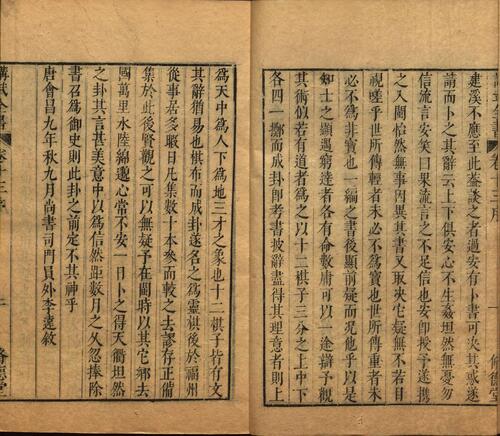 建溪不嘗至此益談之者過安有卜書可决其或遂
請而卜之其辭云上下俱安心不生姦坦然無憂勿
信流言安笑曰果流言之不足信也安卽授予遂携
之入閩恬然無事因異其書又取决它疑無不若目
視嗟乎世所傳輕者未必不爲寳也世所傳重者未
必不爲非寳也一編之書後顯前疑而况他乎以是
知士之顯遇窮達者各有命數庸可以一途辯予觀
其術似若有道者爲之以十二棋子三分之上中下
各四一擲而成卦卽考書披辭盡得其理意者則上
爲天中爲人下爲地三才之象也十二棋子皆有文
其辭猶易也棋布而成卦遂名之爲靈棋後於福州
從事居多暇日凡集數十本參而較之去謬存正備
集於此後賢觀之可以無疑予在閩時以其它鄉去
國萬里水陸綿邈心常不安一日卜之得天衢坦然
之卦其言甚美意中以爲信然距數月之乆忽捧除
書召爲御史則此卦之前定不其神乎
唐會昌九年秋九月尚書司門員外李遠敘